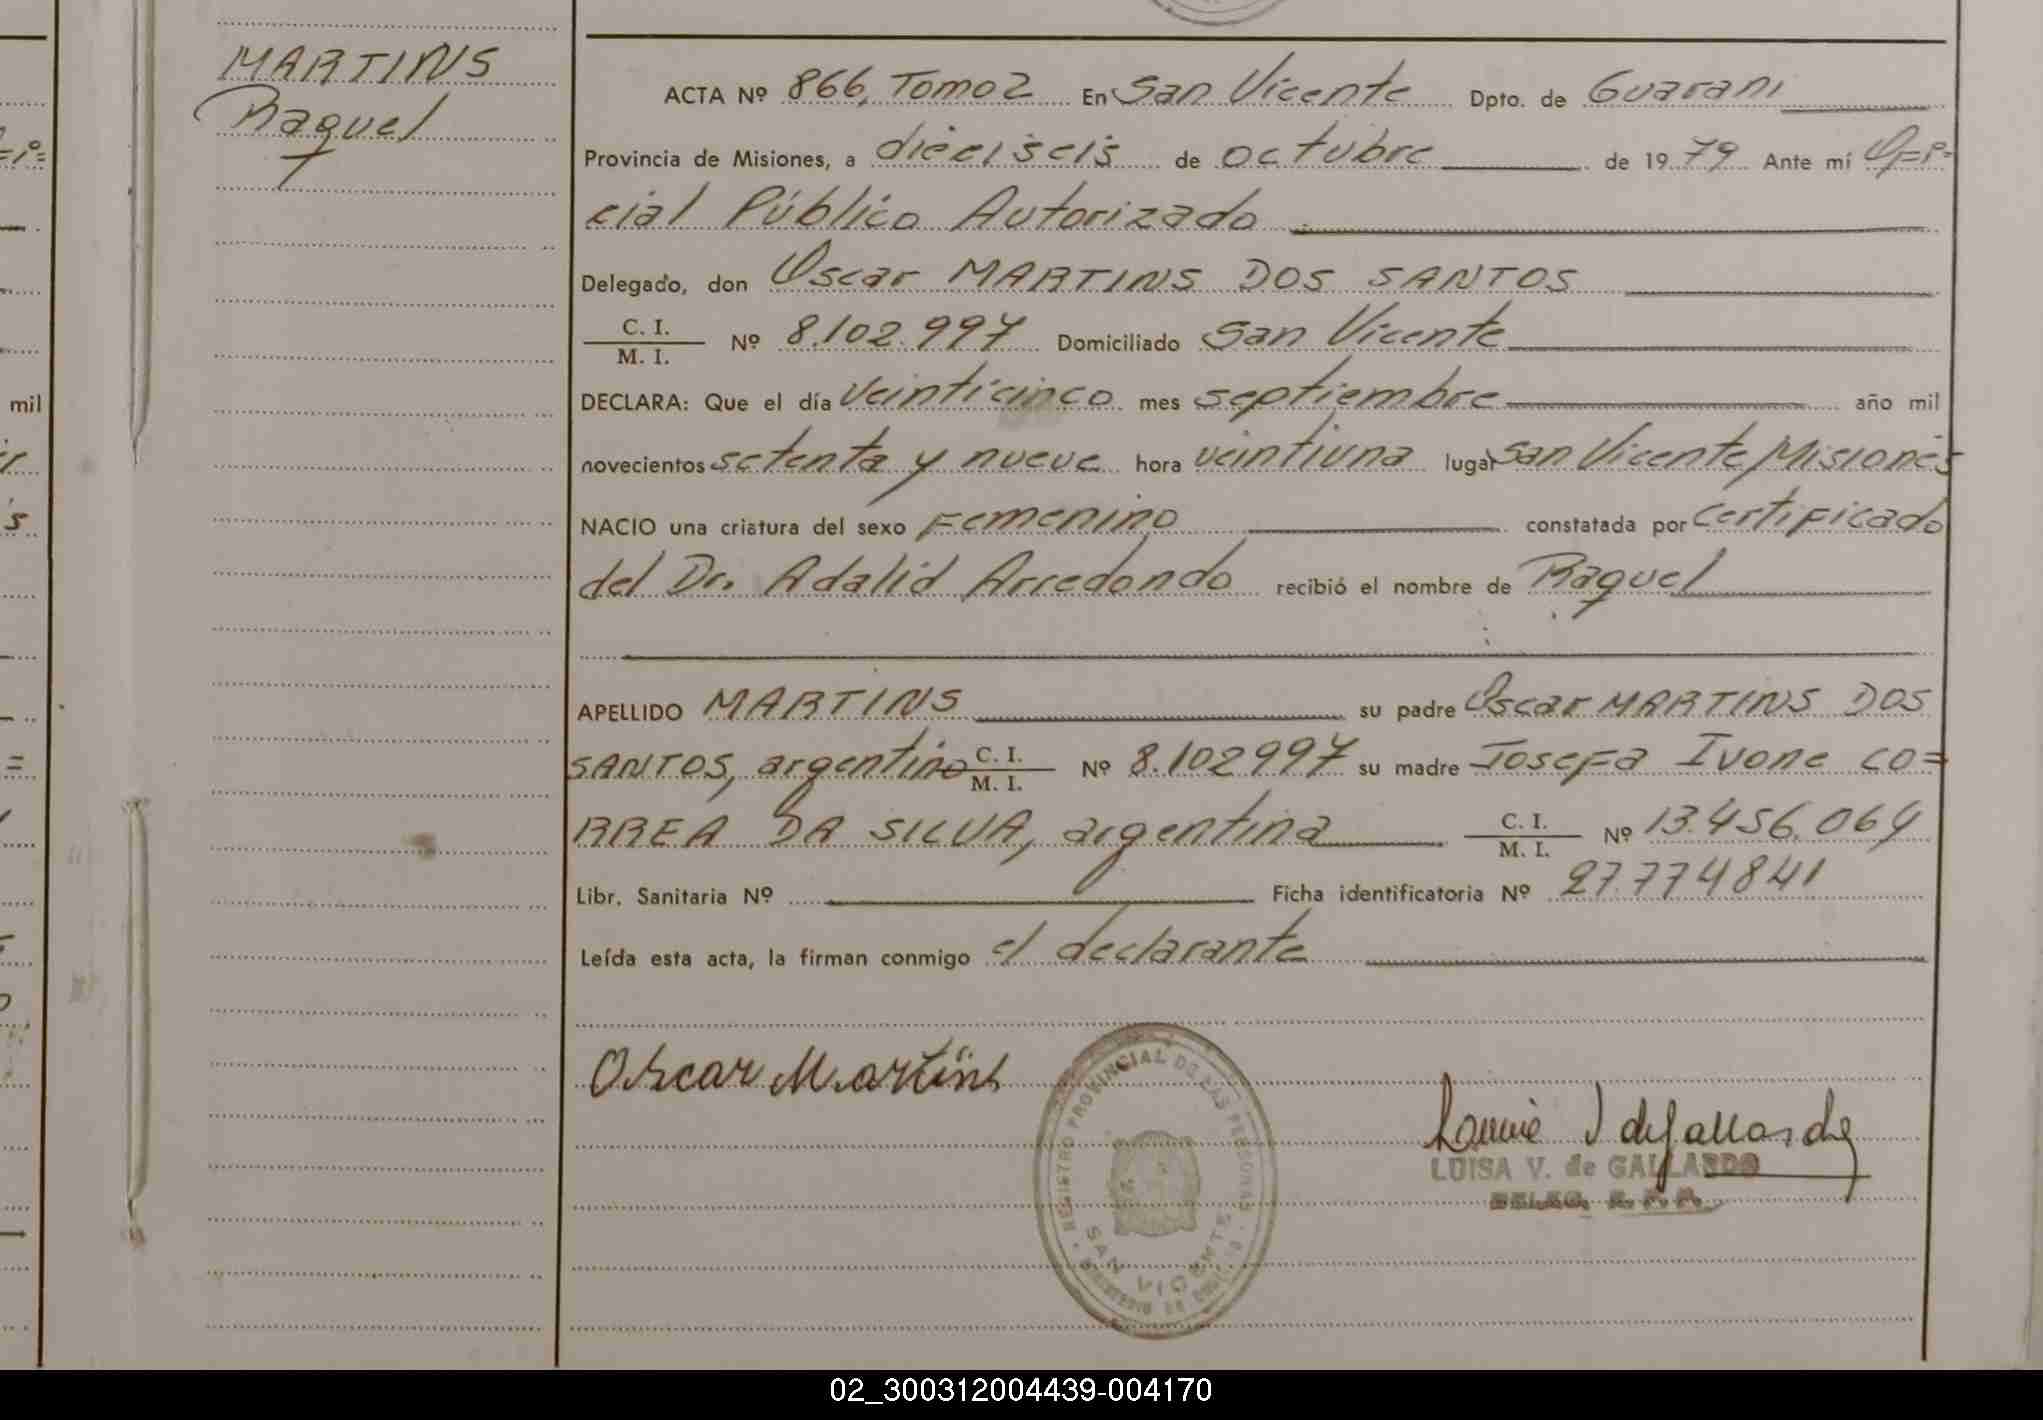 MARTINS
Raquel
ACTA Nº 866, Tomo 2 En San Vicente Dpto. de Guaraní
Provincia de Misiones, a dieciseis de octubre de 1979 Ante mí Ofi=
cial Público Autorizado
Delegado, don Oscar MARTINS DOS SANTOS
C. I.
M. I. Nº 8.102.997 Domiciliado San Vicente
DECLARA: Que el día veinticinco mes septiembre año mil
novecientos setenta y nueve hora veintiuna lugar San Vicente, Misiones
NACIO una criatura del sexo Femenino constatada por certificado
del Dr. Adalid Arredondo recibió el nombre de Raquel
APELLIDO MARTINS su padre Oscar MARTINS DOS
SANTOS, argentino C. I. M. I. Nº 8.102997 su madre Josefa Ivone CO=
RREA DA SILVA, argentina C. I. M. I. Nº 13.456.064
Libr. Sanitaria Nº Ficha identificatoria Nº 27.774841
Leída esta acta, la firman conmigo el declarante
Oscar Martins
REGISTRO PROVINCIAL DE LAS PERSONAS
SAN VICENTE
LUISA V. de GALLARDO
mil
02_300312004439-004170